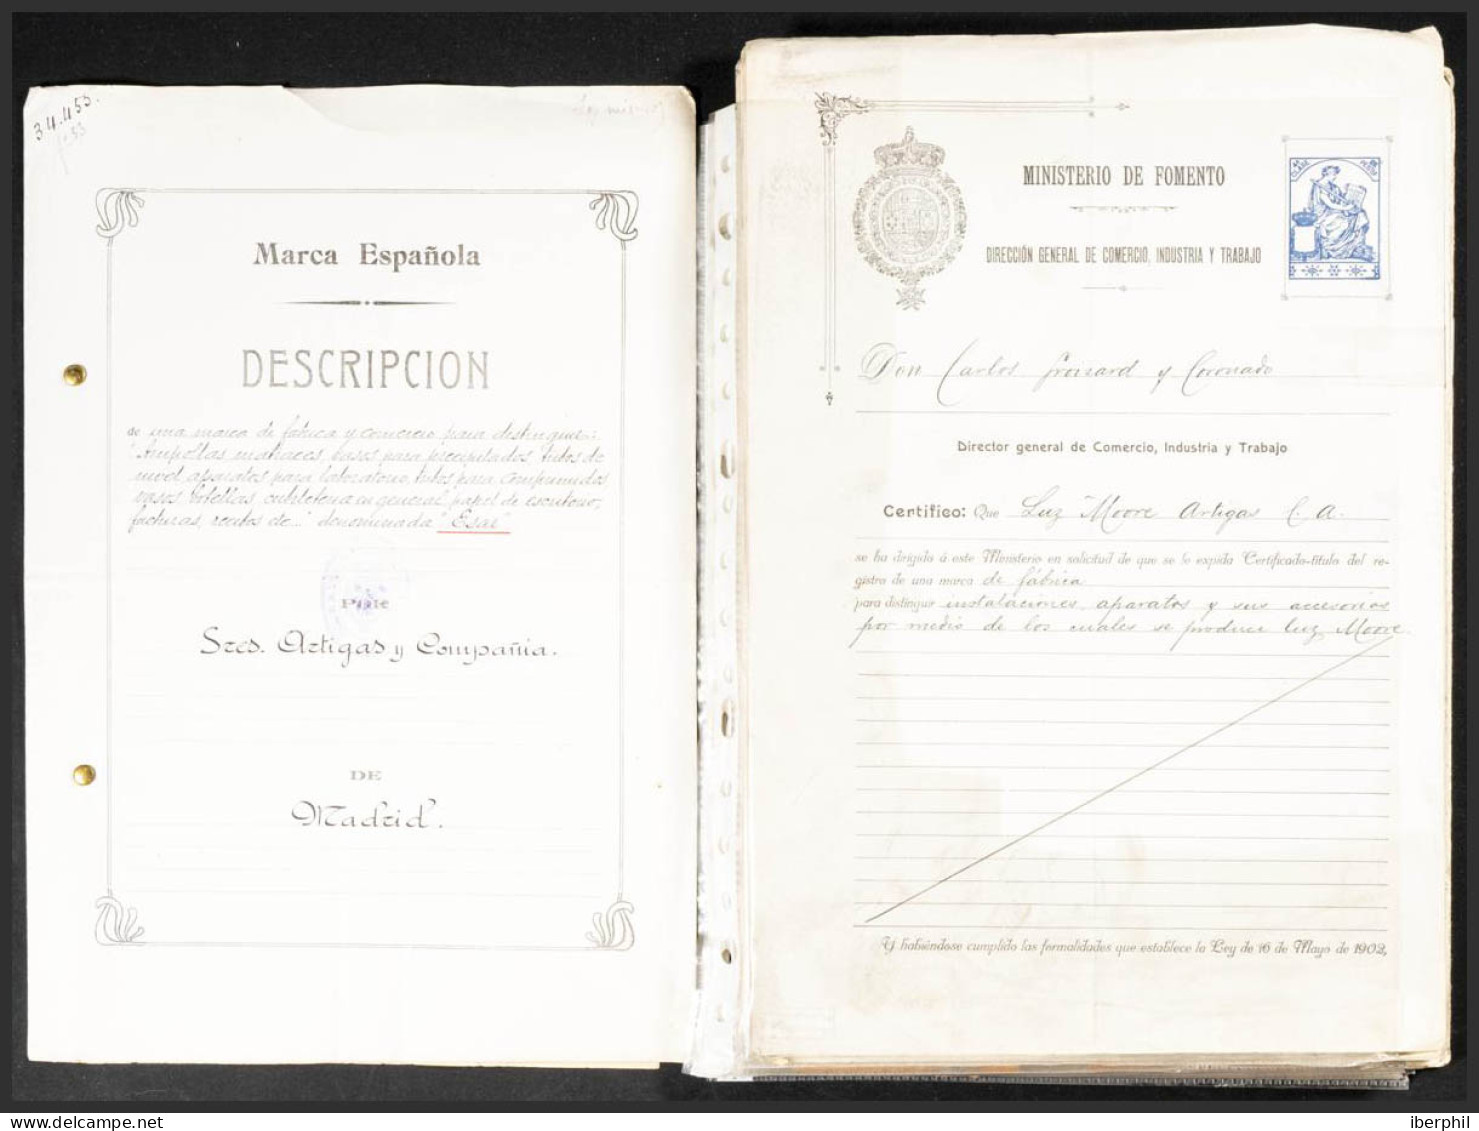 34.453.
Marca Española
DESCRIPCION
de una marca de fabrica y comercio para distinguir:
"Ampollas matraces, vasos para precipitados, tubos de
nivel, aparatos para laboratorio, tubos para comprimidos
vasos botellas, cristaleria en general, papel de escritorio,
facturas, recibos etc." denominada "Esae"
POR
Sres. Artigas y Compañia.
DE
Madrid.
MINISTERIO DE FOMENTO
DIRECCIÓN GENERAL DE COMERCIO, INDUSTRIA Y TRABAJO
Don Carlos y Coronado
Director general de Comercio, Industria y Trabajo
Certifico: Que Luz Moore Artigas C. A.
se ha dirigido á este Ministerio en solicitud de que se le expida Certificado-título del re-
gistro de una marca de fábrica
para distinguir instalaciones, aparatos y sus accesorios
por medio de los cuales se produce luz Moore.
Y habiéndose cumplido las formalidades que establece la Ley de 16 de Mayo de 1902,
delcampe.net
iberphil